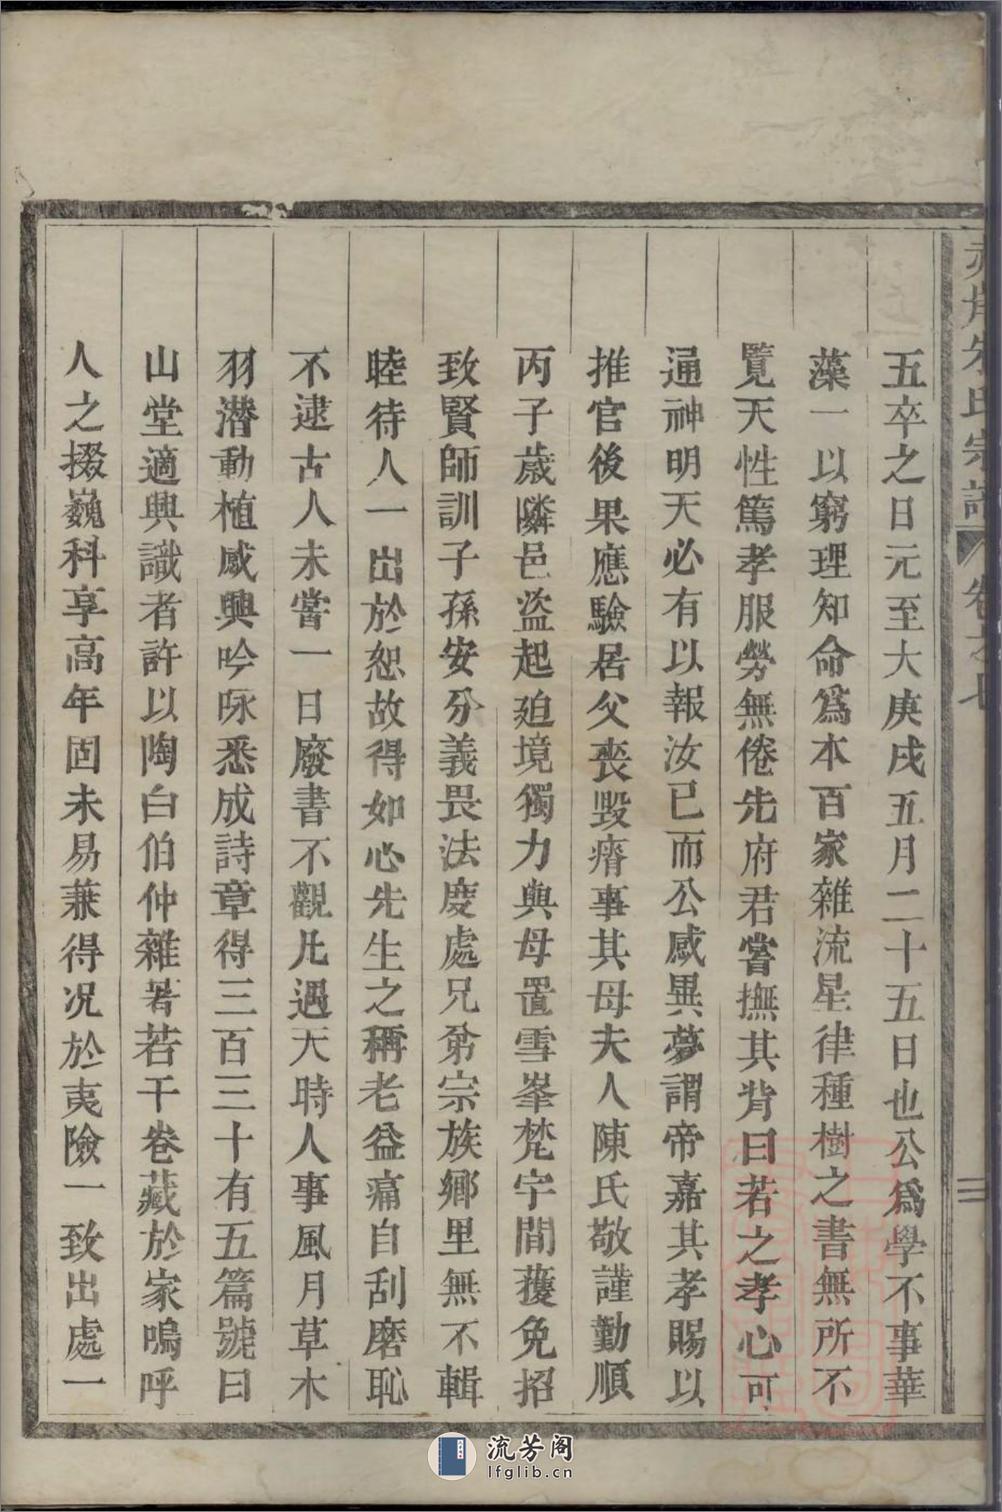 五卒之日元至大庚戌五月二十五日也公爲學不事華
藻一以窮理知命爲本百家雜流星律種樹之書無所不
覽天性篤孝服勞無倦先府君嘗撫其背曰若之孝心可
通神明天必有以報汝已而公感異夢謂帝嘉其孝賜以
推官後果應驗居父喪毀瘠事其母夫人陳氏敬謹勤順
丙子歲隣邑盜起廹境獨力與母置雪峯梵宇間獲免招
致賢師訓子孫安分義畏法度處兄弟宗族鄉里無不輯
睦待人一出於恕故得如心先生之稱老益痛自刮磨恥
不逮古人未嘗一日廢書不觀凡遇天時人事風月草木
羽潛動植感興吟咏悉成詩章得三百三十有五篇號曰
山堂適興識者許以陶白伯仲雜著若干卷藏於家嗚呼
人之掇巍科享高年固未易兼得况於夷險一致出處一
朱氏宗譜 卷之七
流芳阁
lfglib.cn